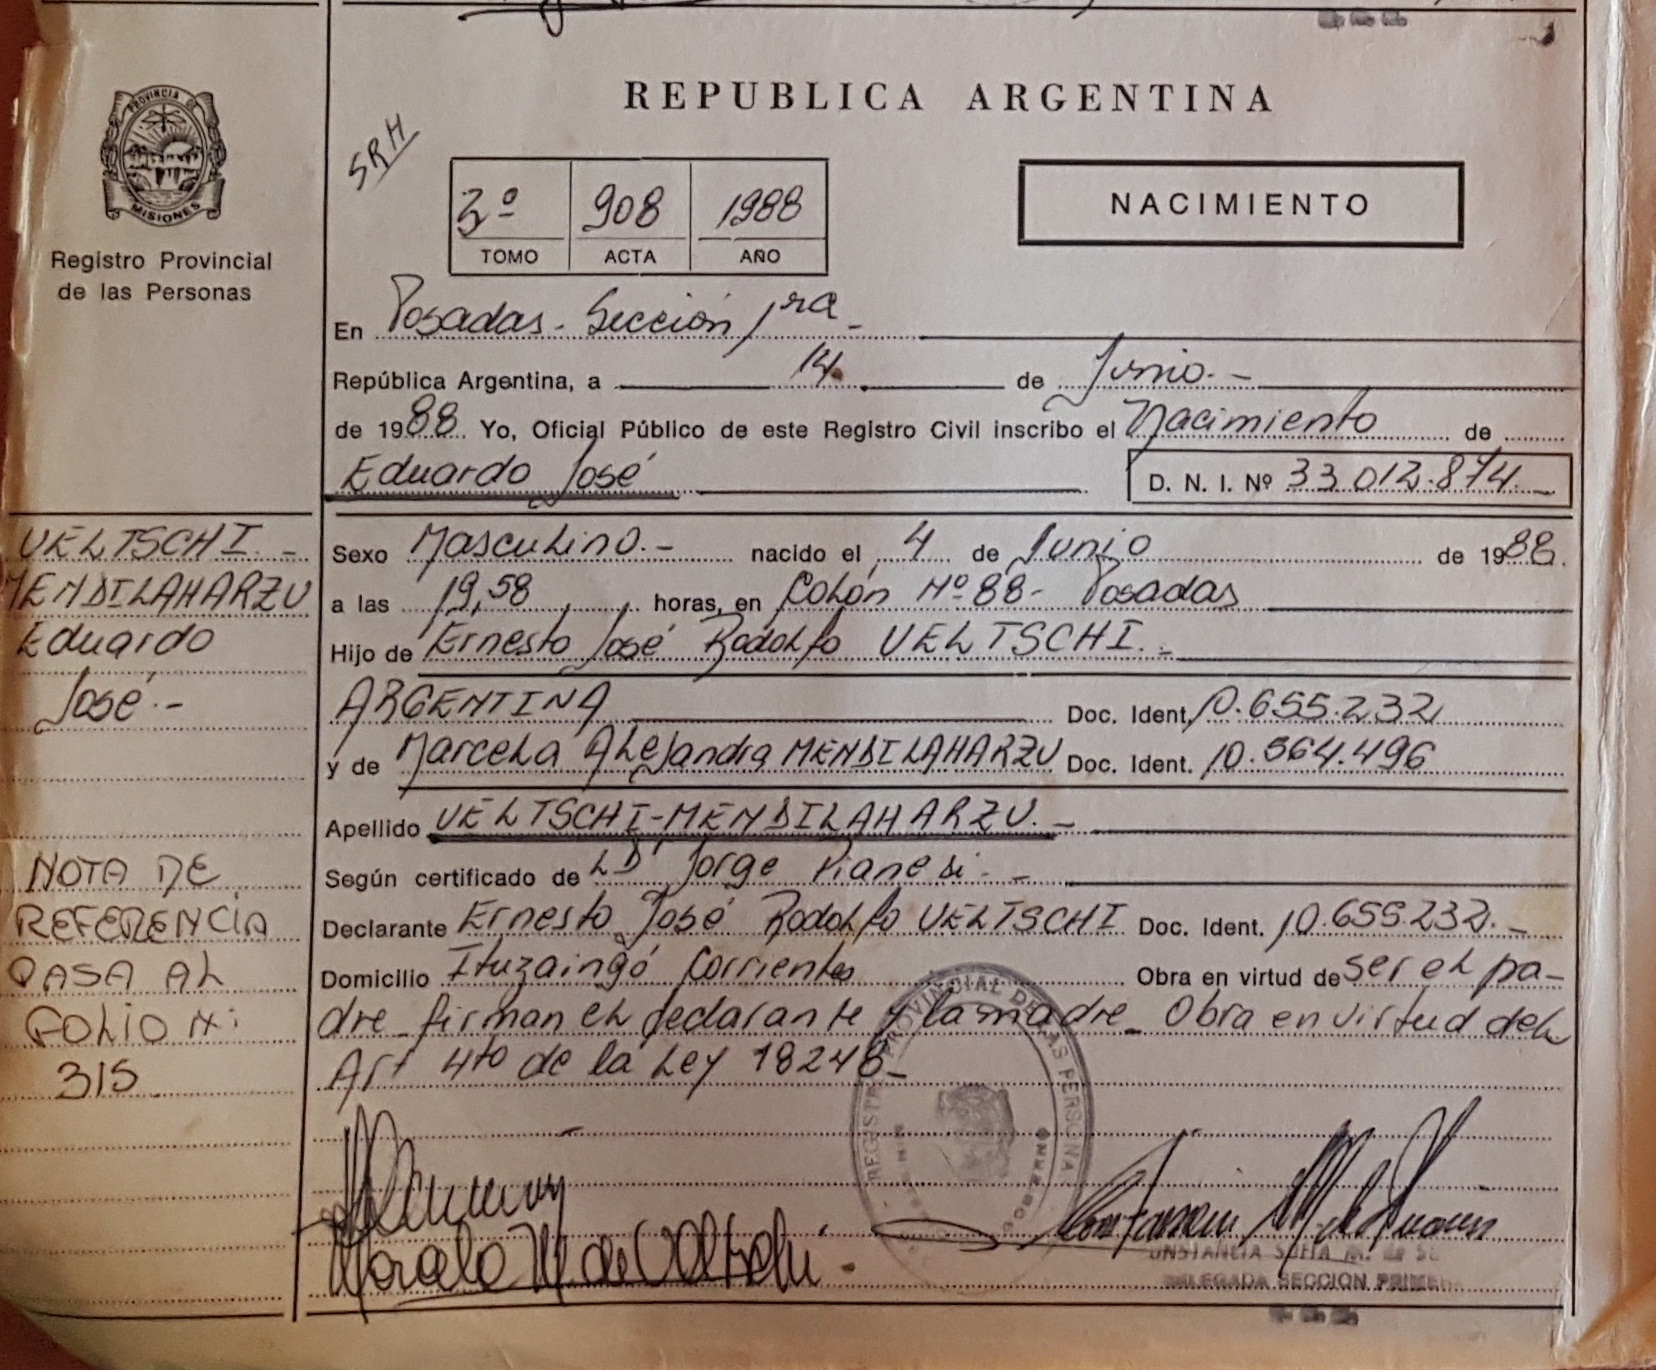 REPUBLICA ARGENTINA
PROVINCIA DE
MISIONES
Registro Provincial
de las Personas
SRH
3º 908 1988
TOMO ACTA AÑO
NACIMIENTO
En Posadas - Sección 1ra -
República Argentina, a 14 de Junio.-
de 1988 Yo, Oficial Público de este Registro Civil inscribo el Nacimiento de
Eduardo José
D. N. I. Nº 33.012.874.-
VELTSCHI -
MENDILAHARZU
Eduardo
José.-
Sexo Masculino.- nacido el 4 de Junio de 1988.
a las 19,58 horas, en Colón Nº 88- Posadas
Hijo de Ernesto José Rodolfo VELTSCHI.-
ARGENTINA Doc. Ident. 10.655.232
y de Marcela Alejandra MENDILAHARZU Doc. Ident. 10.564.496
Apellido VELTSCHI-MENDILAHARZU.-
Según certificado de Jorge Pianesi.-
Declarante Ernesto José Rodolfo VELTSCHI Doc. Ident. 10.655.232.-
Domicilio Ituzaingó Corrientes Obra en virtud de ser el pa-
dre firman el declarante y la madre - Obra en virtud del
Art 4to de la Ley 18248-
NOTA DE
REFERENCIA
PASA AL
FOLIO N:
315
REGISTRO PROVINCIAL DE LAS PERSONAS
SOFIA M. de
DELEGADA SECCION PRIMERA